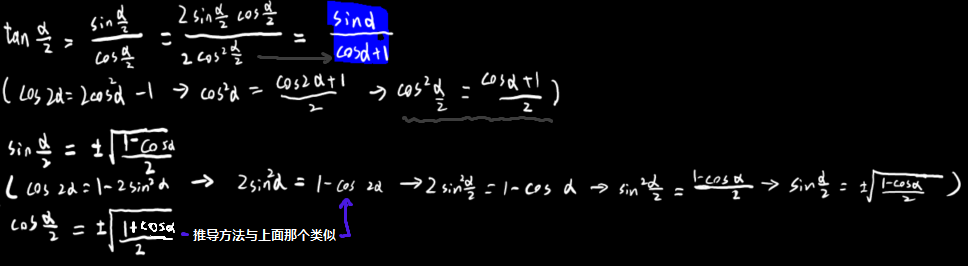 tan α/2 = sin α/2 / cos α/2 = 2 sin α/2 cos α/2 / 2 cos² α/2 = sinα / cosα+1
( cos2α=2cos²α-1 → cos²α = cos2α+1 / 2 → cos² α/2 = cosα+1 / 2 )
sin α/2 = ±√(1-cosα / 2)
( cos 2α=1-2sin²α → 2sin²α = 1-cos 2α → 2 sin² α/2 = 1-cos α → sin² α/2 = 1-cosα / 2 → sin α/2 = ±√(1-cosα / 2) )
cos α/2 = ±√(1+cosα / 2) - 推导方法与上面那个类似